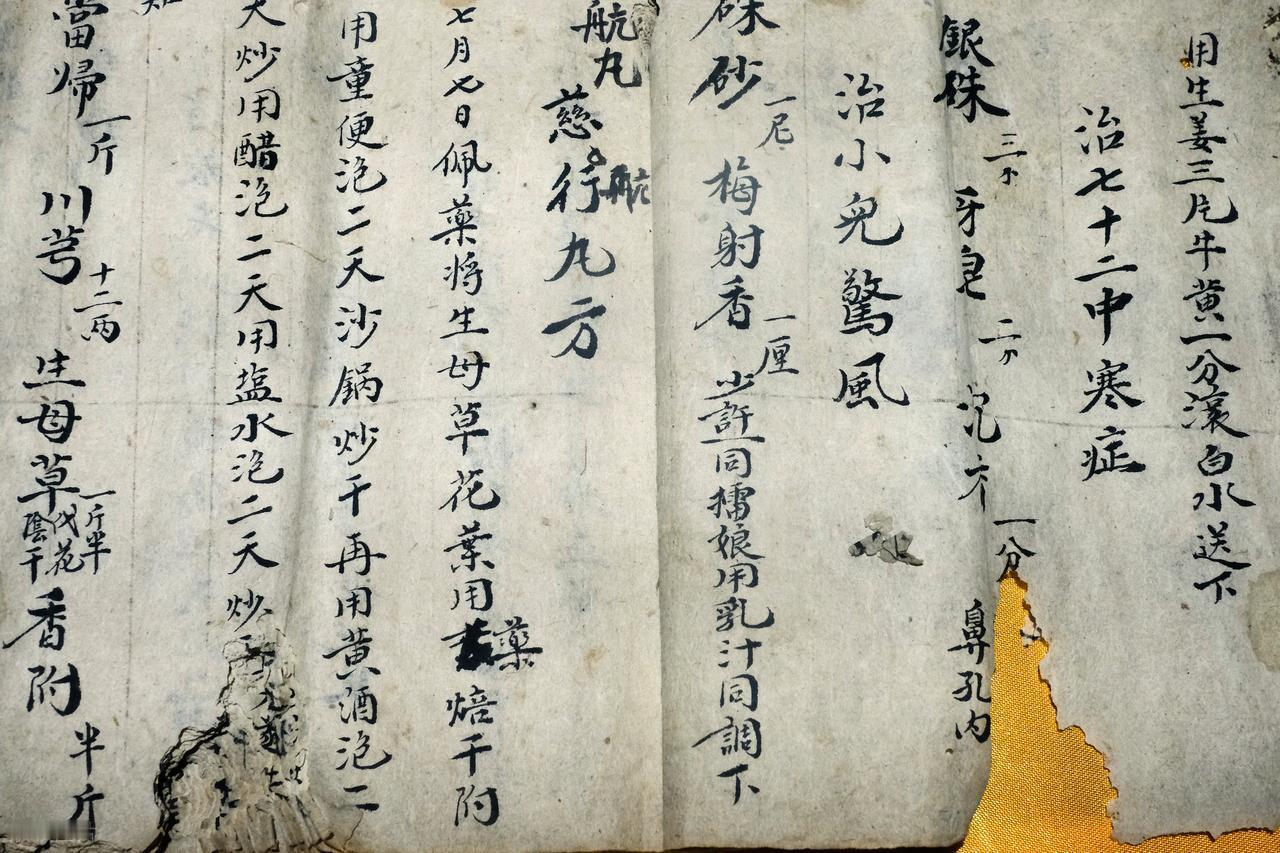 用生姜三片牛黄一分滚白水送下
治七十二中寒症
銀硃 三个 牙皂 二个 一分 鼻孔内
治小兒驚風
硃砂 梅射香 一厘 少許同擂娘用乳汁同調下
航丸
慈行航丸方
七月七日佩藥将生母草花葉用藥焙干附
用童便泡二天沙锅炒干再用黄酒泡二
天炒用醋泡二天用盐水泡二天炒
當歸一斤 川芎 十二两 生母草 一斤半 花 陰干 香附 半斤